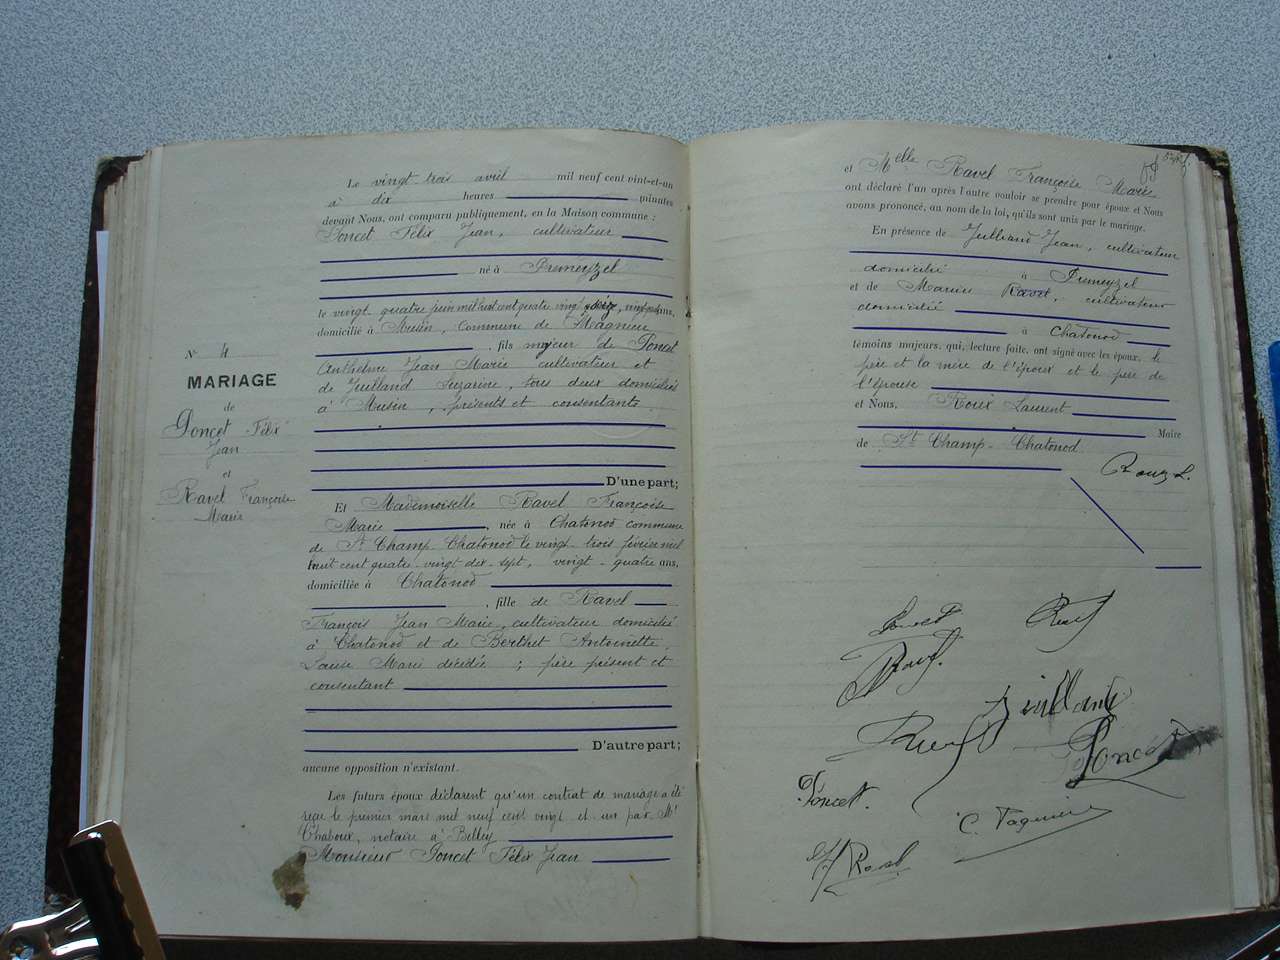 N° 4
MARIAGE
de
Poncet Félix
Jean
et
Ravel Françoise
Marie
Le vingt-trois avril mil neuf cent vint-et-un
à dix heures minutes
devant Nous, ont comparu publiquement, en la Maison commune :
Poncet Félix Jean, cultivateur
né à Premeyzel
le vingt quatre juin mil huit cent quatre vingt ans,
domicilié à Musin, Commune de Magnieu
, fils majeur de Poncet
Anthelme Jean Marie cultivateur et
de Juilland Suzanne, tous deux domiciliés
à Musin, présents et consentants.
D'une part;
Et Mademoiselle Ravel Françoise
Marie , née à Chatonod commune
de St Champ-Chatonod le vingt-trois février mil
huit cent quatre-vingt dix-sept, vingt-quatre ans,
domiciliée à Chatonod
, fille de Ravel
François Jean Marie, cultivateur domicilié
à Chatonod et de Berthet Antoinette
Louise Marie décédée ; père présent et
consentant
D'autre part;
aucune opposition n'existant.
Les futurs époux déclarent qu'un contrat de mariage a été
reçu le premier mars mil neuf cent vingt et un par Mr
Chaboux, notaire à Belley
Monsieur Poncet Félix Jean
et Melle Ravel Françoise Marie
ont déclaré l'un après l'autre vouloir se prendre pour époux et Nous
avons prononcé, au nom de la loi, qu'ils sont unis par le mariage.
En présence de Juilland Jean, cultivateur
domicilié à Premeyzel
et de Marius Ravel, cultivateur
domicilié
à Chatonod
témoins majeurs, qui, lecture faite, ont signé avec les époux, le
père et la mère de l'époux et le père de
l'épouse
et Nous, Roux Laurent
Maire
de St Champ-Chatonod
Roux L.
Poncet
Ravel
Juilland
Poncet
Poncet.
Ravel